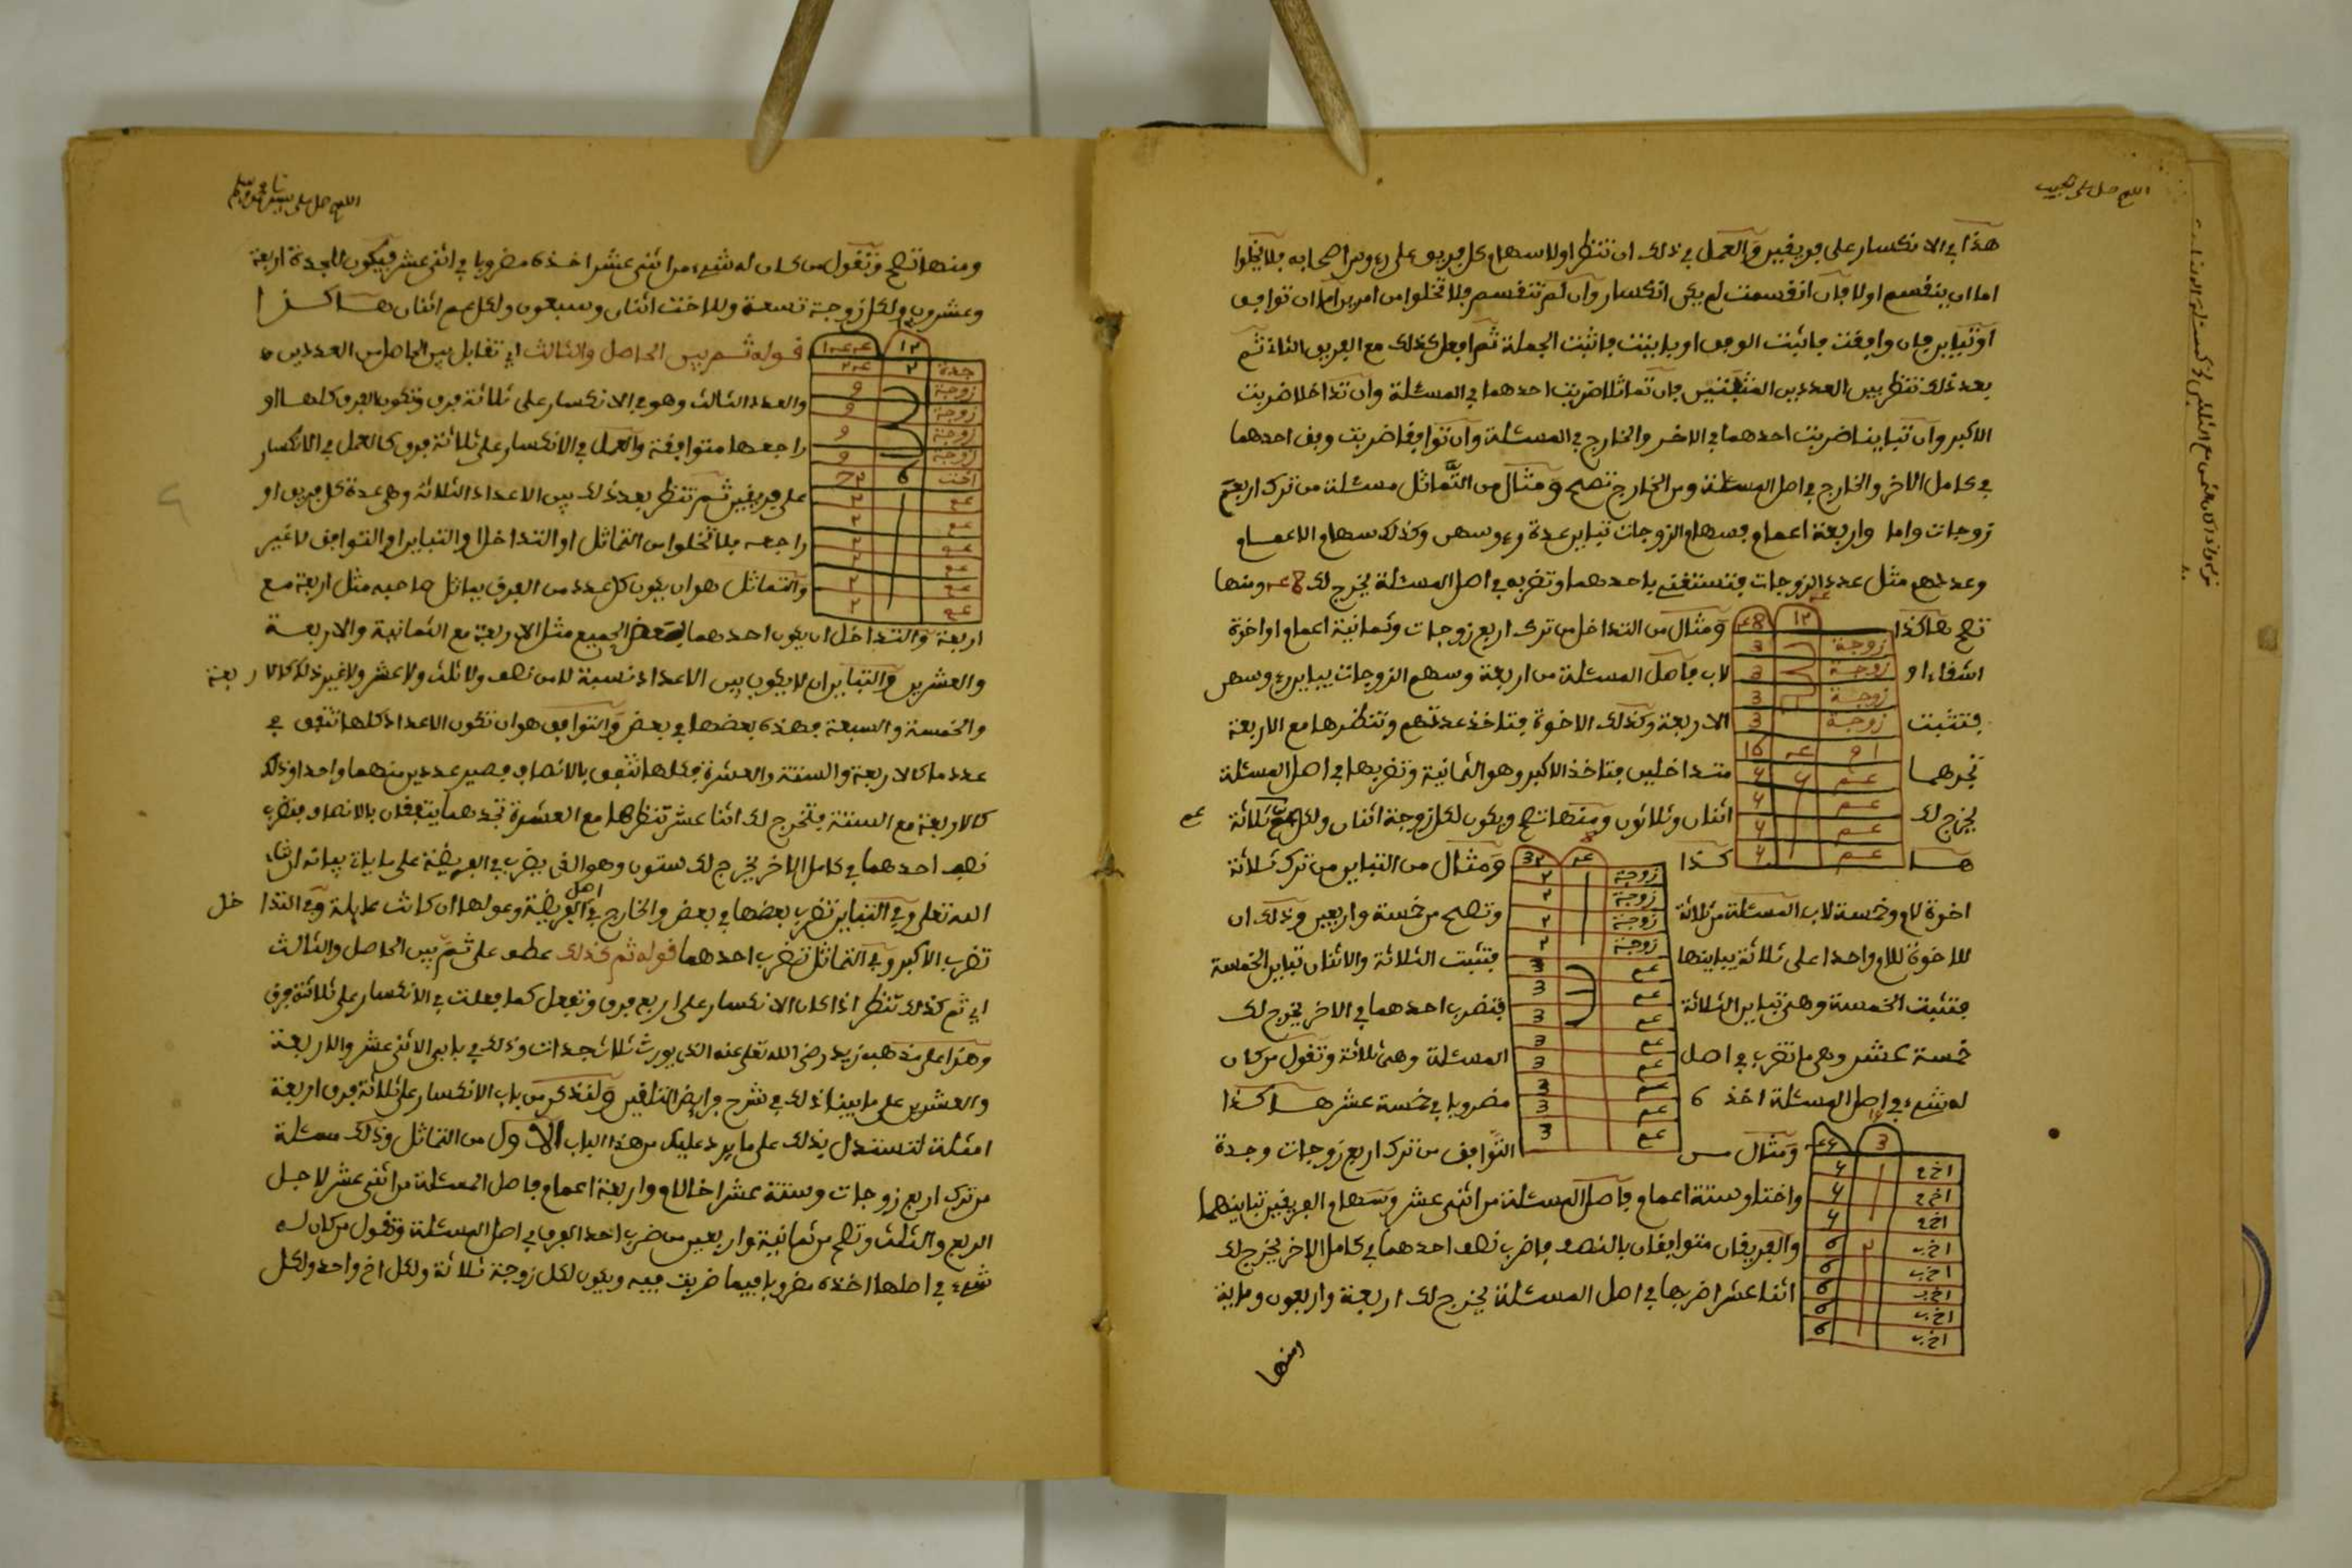 اللهم صل على الحبيب
هذا في الانكسار على فريقين والعمل في ذلك ان تنظر اولا سهام كل فريق على رءوس اصحابه فلا يخلوا
اما ان ينقسم اولا فان انقسمت لم يكن انكسار وان لم تنقسم فلا تخلوا من امرين اما ان توافق
او تباين فان وافقت فاثبت الوفق او باينت فاثبت الجملة ثم افعل كذلك مع الفريق الثاني ثم
بعد ذلك تنظر بين العددين المثبتين فان تماثلا ضربت احدهما في المسئلة وان تداخلا ضربت
الاكبر وان تباينا ضربت احدهما في الاخر والخارج في المسئلة وان توافقا ضربت وفق احدهما
في كامل الاخر والخارج في اصل المسئلة ومن الخارج تصح ومثال من التماثل مسئلة من ترك اربع
زوجات واما واربعة اعمام فسهام الزوجات تباين عدة رءوسهن وكذلك سهام الاعمام
وعددهم مثل عدد الزوجات فتستغني باحدهما وتضربه في اصل المسئلة يخرج لك 48 ومنها
تصح هاكذا ومثال من التداخل من ترك اربع زوجات وثمانية اعمام او اخوة
اشقاء او لاب فاصل المسئلة من اربعة وسهم الزوجات يباين رءوسهن
فتثبت الاربعة وكذلك الاخوة فتاخذ عدتهم وتنظرها مع الاربعة
تجدهما متداخلين فتاخذ الاكبر وهو الثمانية وتضربها في اصل المسئلة
يخرج لك اثنان وثلاثون ومنها تصح ويكون لكل زوجة اثنان ولكل عم ثلاثة
هاكذا ومثال من التباين من ترك ثلاثة
اخوة لام وخمسة لاب المسئلة من ثلاثة وتصح من خمسة واربعين وذلك ان
للاخوة للام واحدا على ثلاثة يباينها فتثبت الثلاثة والاثنان تباين الخمسة
فتثبت الخمسة وهي تباين الثلاثة فتضرب احدهما في الاخر يخرج لك
خمسة عشر وهي ما تضرب في اصل المسئلة وهي ثلاثة وتقول من كان
له شيء في اصل المسئلة اخذه مضروبا في خمسة عشر هاكذا
ومثال من التوافق من ترك اربع زوجات وجدة
واختا وستة اعمام فاصل المسئلة من اثني عشر وسهام الفريقين تباينهما
والفريقان متوافقان بالنصف فاضرب نصف احدهما في كامل الاخر يخرج لك
اثنا عشر اضربها في اصل المسئلة يخرج لك اربعة واربعون وماية
ومنها
12 48
زوجة 3
زوجة 3
زوجة 3
زوجة 3
ام 4 16
عم 4
عم 4
عم 4
عم 4
4 32
زوجة 2
زوجة 2
زوجة 2
زوجة 2
عم 3
عم 3
عم 3
عم 3
عم 3
عم 3
عم 3
عم 3
3
اخ م
اخ م
اخ م
اخ ب 6
اخ ب 6
اخ ب 6
اخ ب 6
اخ ب 6
ومنها تصح وتقول من كان له شيء من اثني عشر اخذه مضروبا في اثني عشر فيكون للجدة اربعة
وعشرون ولكل زوجة تسعة وللاخت اثنان وسبعون ولكل عم اثنان هاكذا
قوله ثم بين الحاصل والثالث اي تقابل بين الحاصل من العددين
والعدد الثالث وهو في الانكسار على ثلاثة فرق وتكون الفرق كلها او
راجعها متوافقة والعمل في الانكسار على ثلاثة فرق كالعمل في الانكسار
على فريقين ثم تنظر بعد ذلك بين الاعداد الثلاثة وهي عدة كل فريق او
راجعه فلا تخلوا من التماثل او التداخل او التباين او التوافق لا غير
والتماثل هو ان يكون كل عدد من الفرق يماثل صاحبه مثل اربعة مع
اربعة والتداخل ان يكون احدهما بعض الجميع مثل الاربعة مع الثمانية والاربعة
والعشرين والتباين ان لا يكون بين الاعداد نسبة لا من نصف ولا ثلث ولا عشر ولا غير ذلك كالاربعة
والخمسة والسبعة فهذه بعضها في بعض والتوافق هو ان تكون الاعداد كلها تتفق في
عدد ما كالاربعة والستة والعشرة فكلها تتفق بالانصاف فصير عددين منهما واحدا وذلك
كالاربعة مع الستة فتخرج لك اثنا عشر تنظرها مع العشرة تجدهما يتفقان بالانصاف فتضرب
نصف احدهما في كامل الاخر يخرج لك ستون وهو الذي يضرب في الفريضة على ما ياتي بيانه ان شاء
الله تعلى وفي التباين تضرب بعضها في بعض والخارج في اصل الفريضة وعولها ان كانت عايلة وفي التداخل
تضرب الاكبر وفي التماثل تضرب احدهما قوله ثم كذلك عطف على ثم بين الحاصل والثالث
اي ثم كذلك تنظر اذا كان الانكسار على اربع فرق وتفعل كما فعلت في الانكسار على ثلاثة فرق
وهذا على مذهب زيد رضي الله تعلى عنه الذي يورث ثلاث جدات وذلك في بابي الاثني عشر والاربعة
والعشرين على ما بينا ذلك في شرح فرايض ولنذكر من باب الانكسار على ثلاثة فرق اربعة
امثلة لتستدل بذلك على ما يرد عليك من هذا الباب الاول من التماثل وذلك مسئلة
من ترك اربع زوجات وستة عشر اخا لام واربعة اعمام فاصل المسئلة من اثني عشر لاجل
الربع والثلث وتصح من ثمانية واربعين من ضرب احد الفرق في اصل المسئلة وتقول من كان له
شيء في اصلها اخذه مضروبا فيما ضربت فيه ويكون لكل زوجة ثلاثة ولكل اخ واحد ولكل
12 144
جدة 2 24
زوجة 9
زوجة 9
زوجة 9
زوجة 9
اخت 6 72
عم 2
عم 2
عم 2
عم 2
عم 2
عم 2